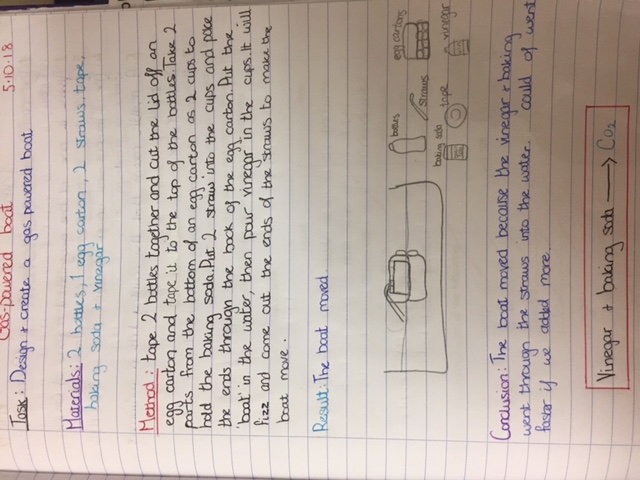 Gas-powered boat 5.10.18
Task: Design + create a gas powered boat
Materials: 2 bottles, 1 egg carton, 2 straws, tape,
baking soda + vinegar
Method: tape 2 bottles together and cut the lid off an
egg carton and tape it to the top of the bottles. Take 2
parts from the bottom of an egg carton as 2 cups to
hold the baking soda. Put 2 straw into the cups and poke
the ends through the back of the egg carton. Put the
'boat' in the water, then pour vinegar in the cups. It will
fizz and come out the ends of the straws to make the
boat move.
Result: The boat moved
bottles
egg cartons
straws
baking soda
tape
vinegar
Conclusion: The boat moved because the vinegar + baking
went through the straws into the water. could of went
faster if we added more.
Vinegar + baking soda → Co₂